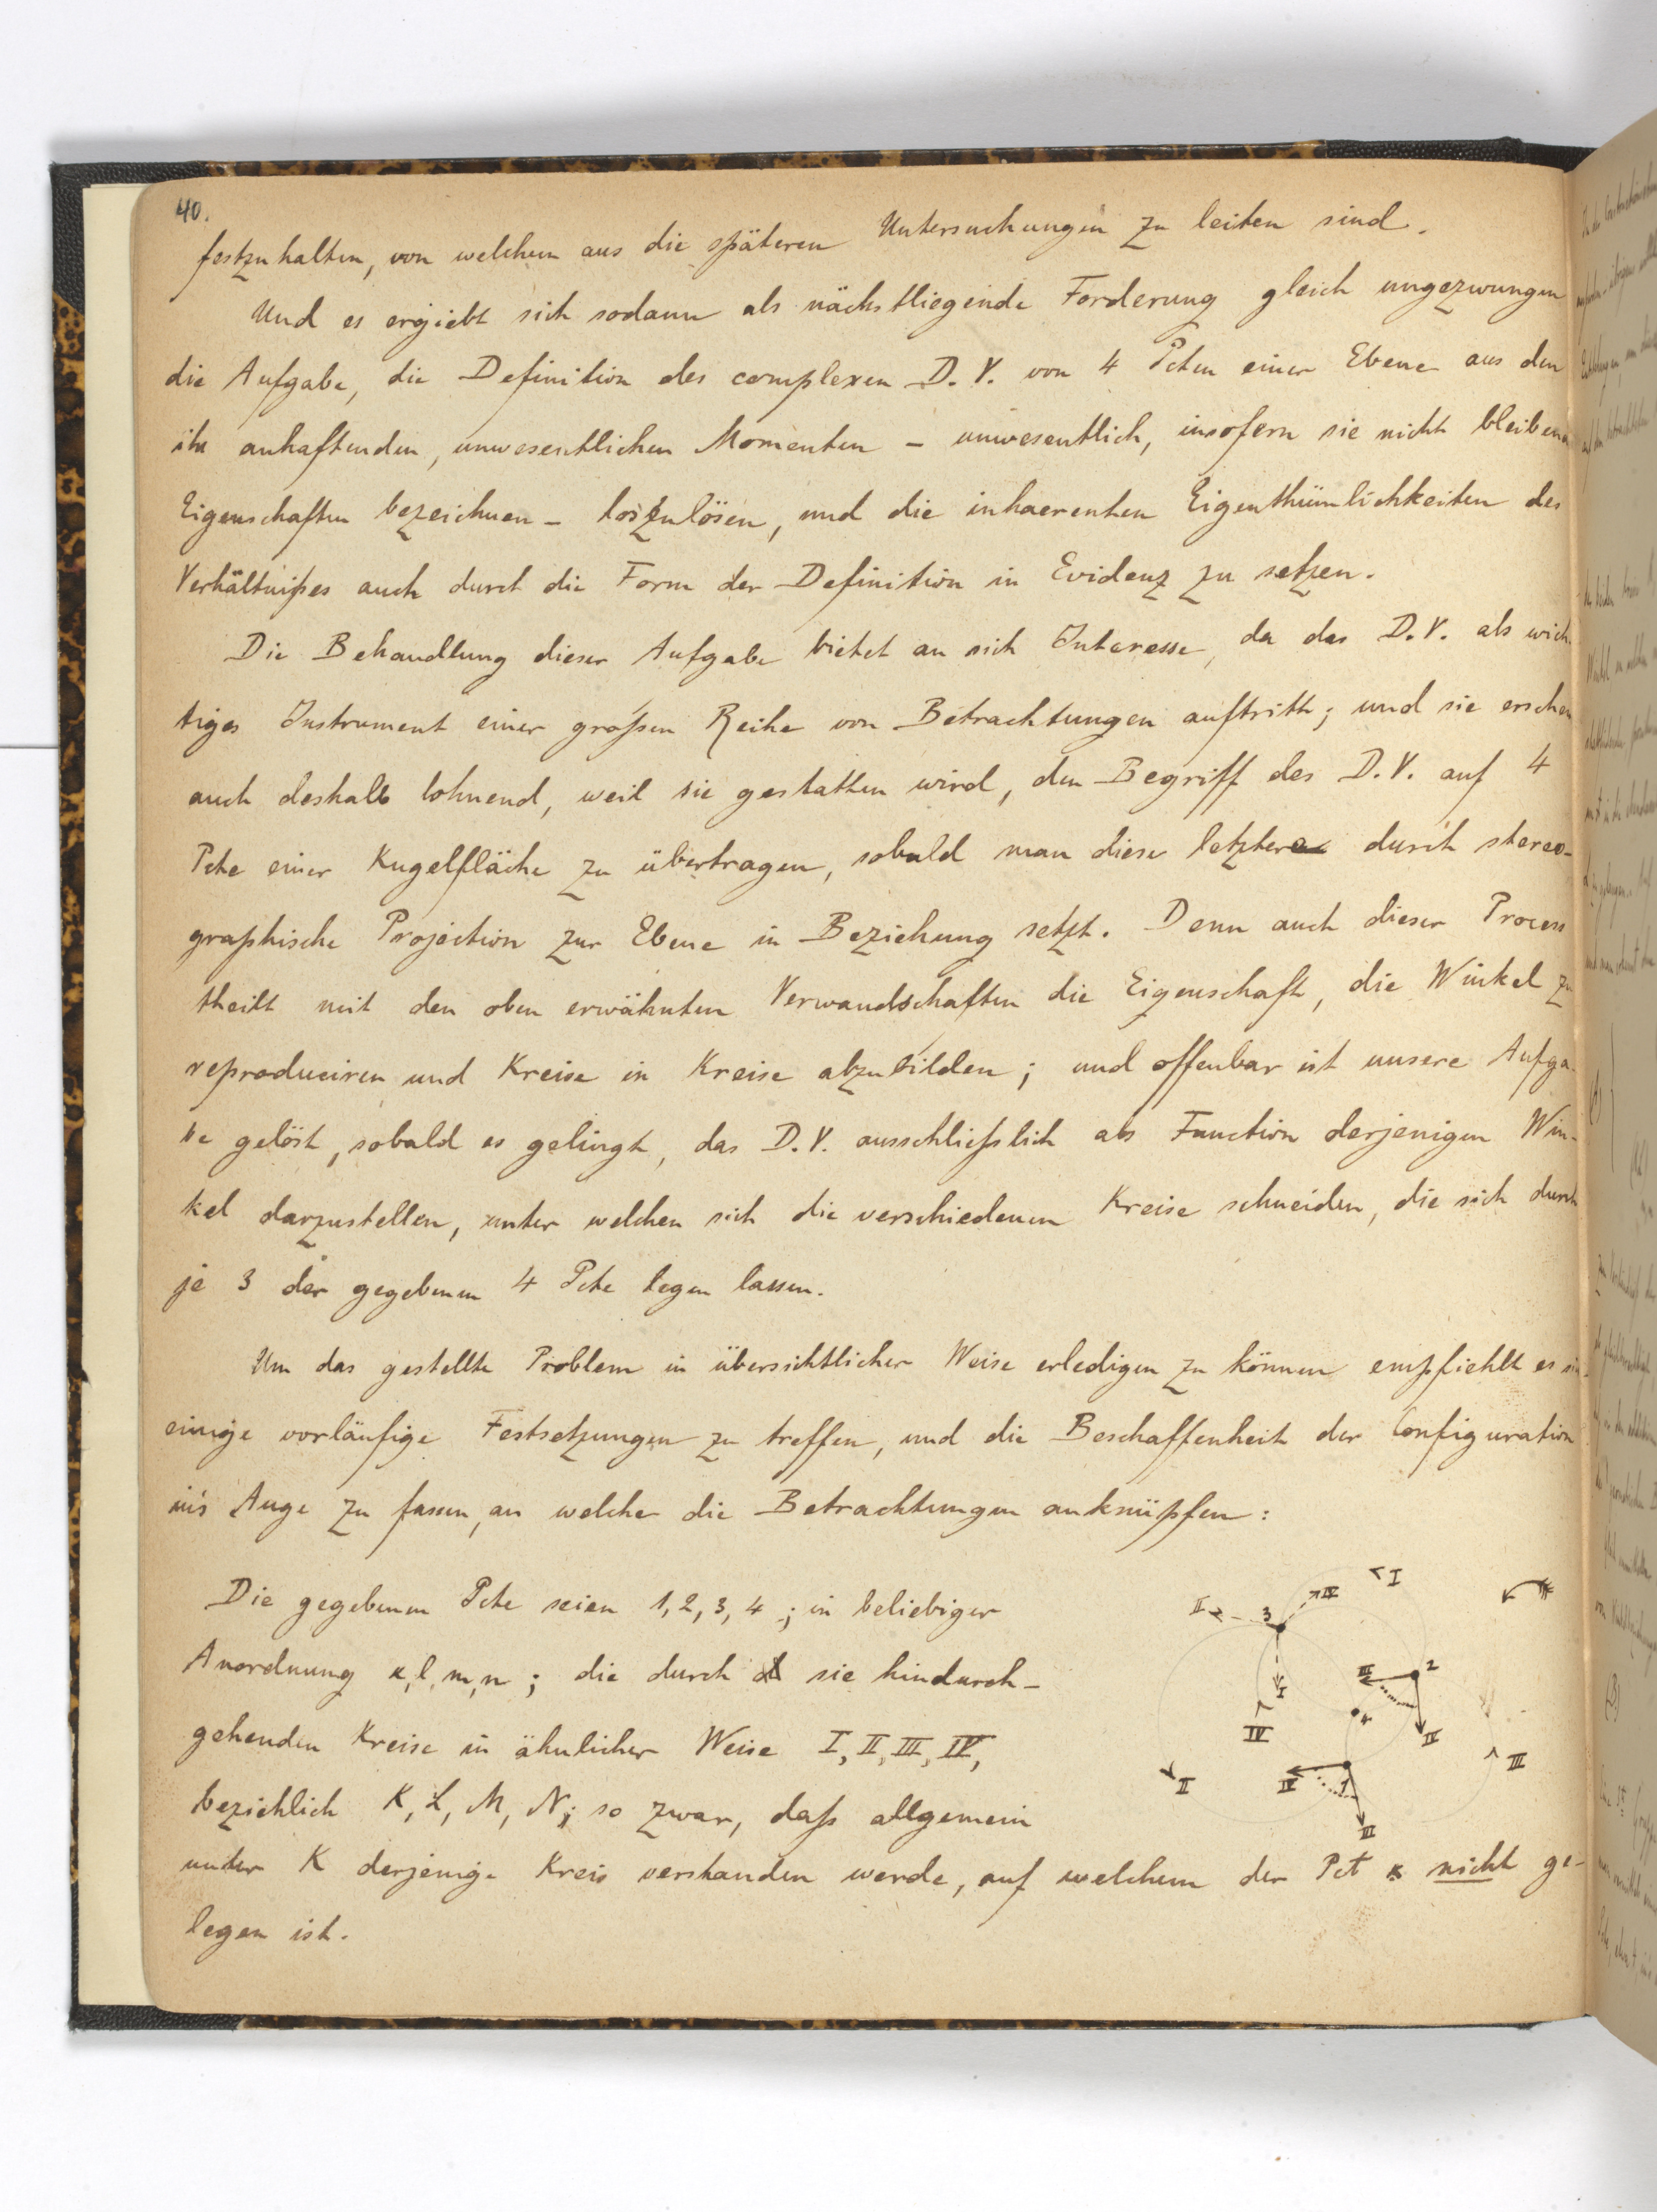 40.
festzuhalten, von welchem aus die späteren Untersuchungen zu leiten sind.
Und es ergiebt sich sodann als nächstliegende Forderung gleich ungezwungen
die Aufgabe, die Definition des complexen D.V. von 4 Pcten einer Ebene aus den
ihr anhaftenden, unwesentlichen Momenten – unwesentlich, insofern sie nicht bleibende
Eigenschaften bezeichnen – loszulösen, und die inhaerenten Eigenthümlichkeiten des
Verhältnißes auch durch die Form der Definition in Evidenz zu setzen.
Die Behandlung dieser Aufgabe bietet an sich Interesse, da das D.V. als wich-
tiges Instrument einer großen Reihe von Betrachtungen auftritt; und sie erschei
auch deshalb lohnend, weil sie gestatten wird, den Begriff des D.V. auf 4
Pcte einer Kugelfläche zu übertragen, sobald man diese letztere durch stereo-
graphische Projection zur Ebene in Beziehung setzt. Denn auch dieser Process
theilt mit den oben erwähnten Verwandschaften die Eigenschaft, die Winkel zu
reproduciren und Kreise in Kreise abzubilden; und offenbar ist unsere Aufga-
be gelöst, sobald es gelingt, das D.V. ausschließlich als Function derjenigen Win-
kel darzustellen, unter welchen sich die verschiedenen Kreise schneiden, die sich durch
je 3 der gegebenen 4 Pcte legen lassen.
Um das gestellte Problem in übersichtlicher Weise erledigen zu können empfiehlt es sich
einige vorläufige Festsetzungen zu treffen, und die Beschaffenheit der Configuration
in's Auge zu fassen, an welche die Betrachtungen anknüpfen:
Die gegebenen Pcte seien 1, 2, 3, 4; in beliebiger
Anordnung k, l, m, n; die durch sie hindurch-
gehenden Kreise in ähnlicher Weise I, II, III, IV,
beziehlich K, L, M, N; so zwar, daß allgemein
unter K derjenige Kreis verstanden werde, auf welchem der Pct k nicht ge-
legen ist.
I
II
3
IV
III
2
I
4
IV
IV
II
IV
1
III
III